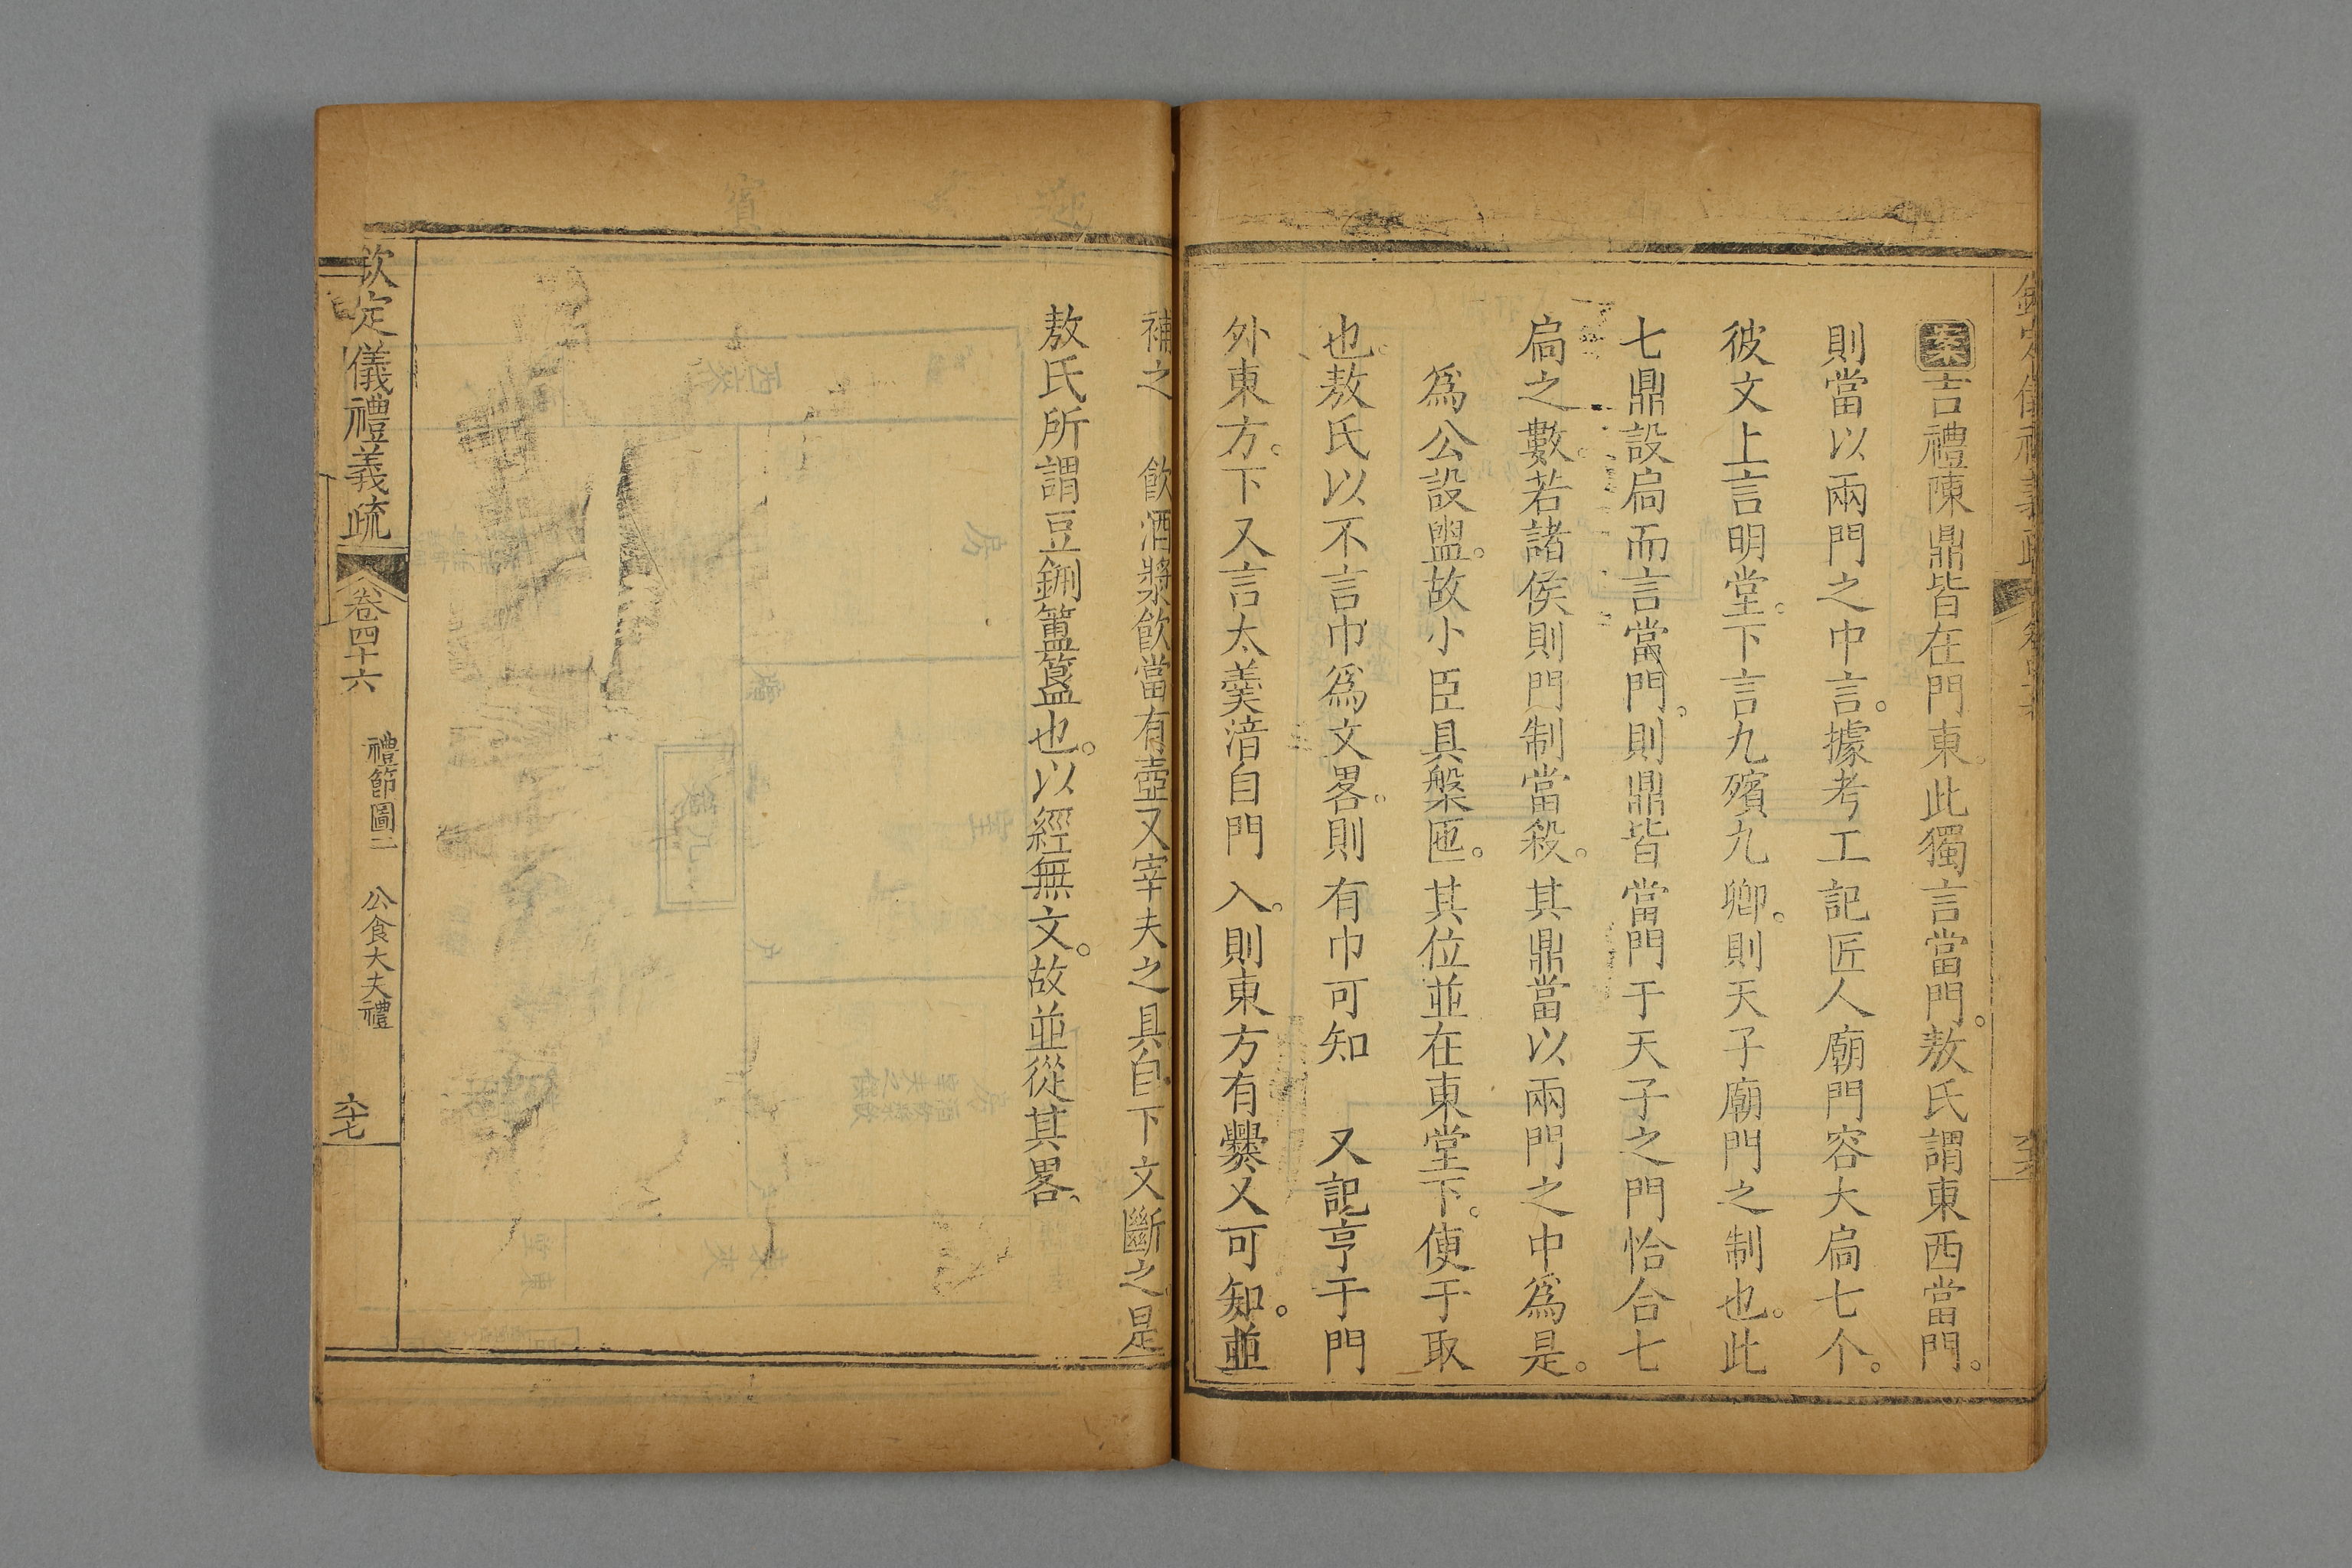 案吉禮陳鼎皆在門東。此獨言當門。敖氏謂東西當門。
則當以兩門之中言。據考工記匠人廟門容大扃七个。
彼文上言明堂。下言九殯九卿。則天子廟門之制也。此
七鼎設扃而言當門。則鼎皆當門于天子之門恰合七
扃之數。若諸侯則門制當殺。其鼎當以兩門之中爲是。
爲公設盥。故小臣具槃匜。其位並在東堂下。便于取
也。敖氏以不言巾爲文畧。則有巾可知 又記亨于門
外東方。下又言太羹湆自門入。則東方有爨又可知。並
補之 飲酒漿飲當有壺又宰夫之具自下文斷之是
敖氏所謂豆鉶簠簋也。以經無文。故並從其畧。
欽定儀禮義疏 卷四十六 禮節圖二 公食大夫禮 六十七